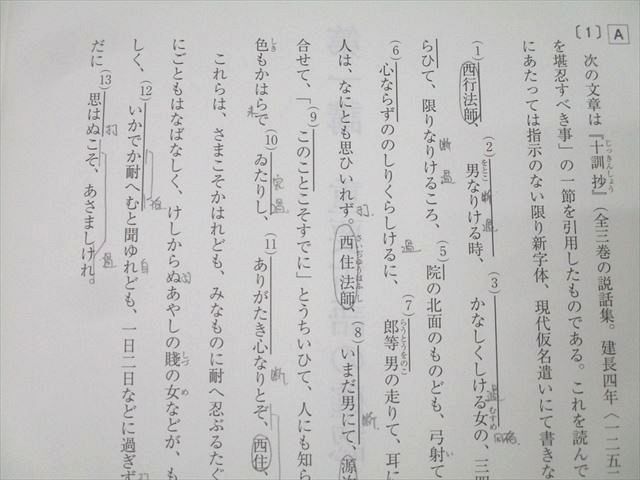 A
〔1〕 次の文章は『十訓抄』(全三巻の説話集。建長四年〈一二五二
を堪忍すべき事」の一節を引用したものである。これを読んで
にあたっては指示のない限り新字体、現代仮名遣いにて書きな
(1)西行法師、(2)男なりける時、(3)かなしくしける女の、三四
らひて、限りなりけるころ、(5)院の北面のものども、弓射て
(6)心ならずののしりくらしけるに、(7)郎等男の走りて、耳に
人は、なにとも思ひいれず。西住法師、(8)いまだ男にて、源次
合せて、「(9)このことこそすでに」とうちいひて、人にも知ら
色もかはらで(10)ゐたりし、(11)ありがたき心なりとぞ、西住、
これらは、さまこそかはれども、みなものに耐へ忍ぶるたぐ
にごともはなばなしく、けしからぬあやしの賤の女などが、も
しく、(12)いかでか耐へむと聞ゆれども、一日二日などに過ぎず
だに(13)思はぬこそ、あさましけれ。